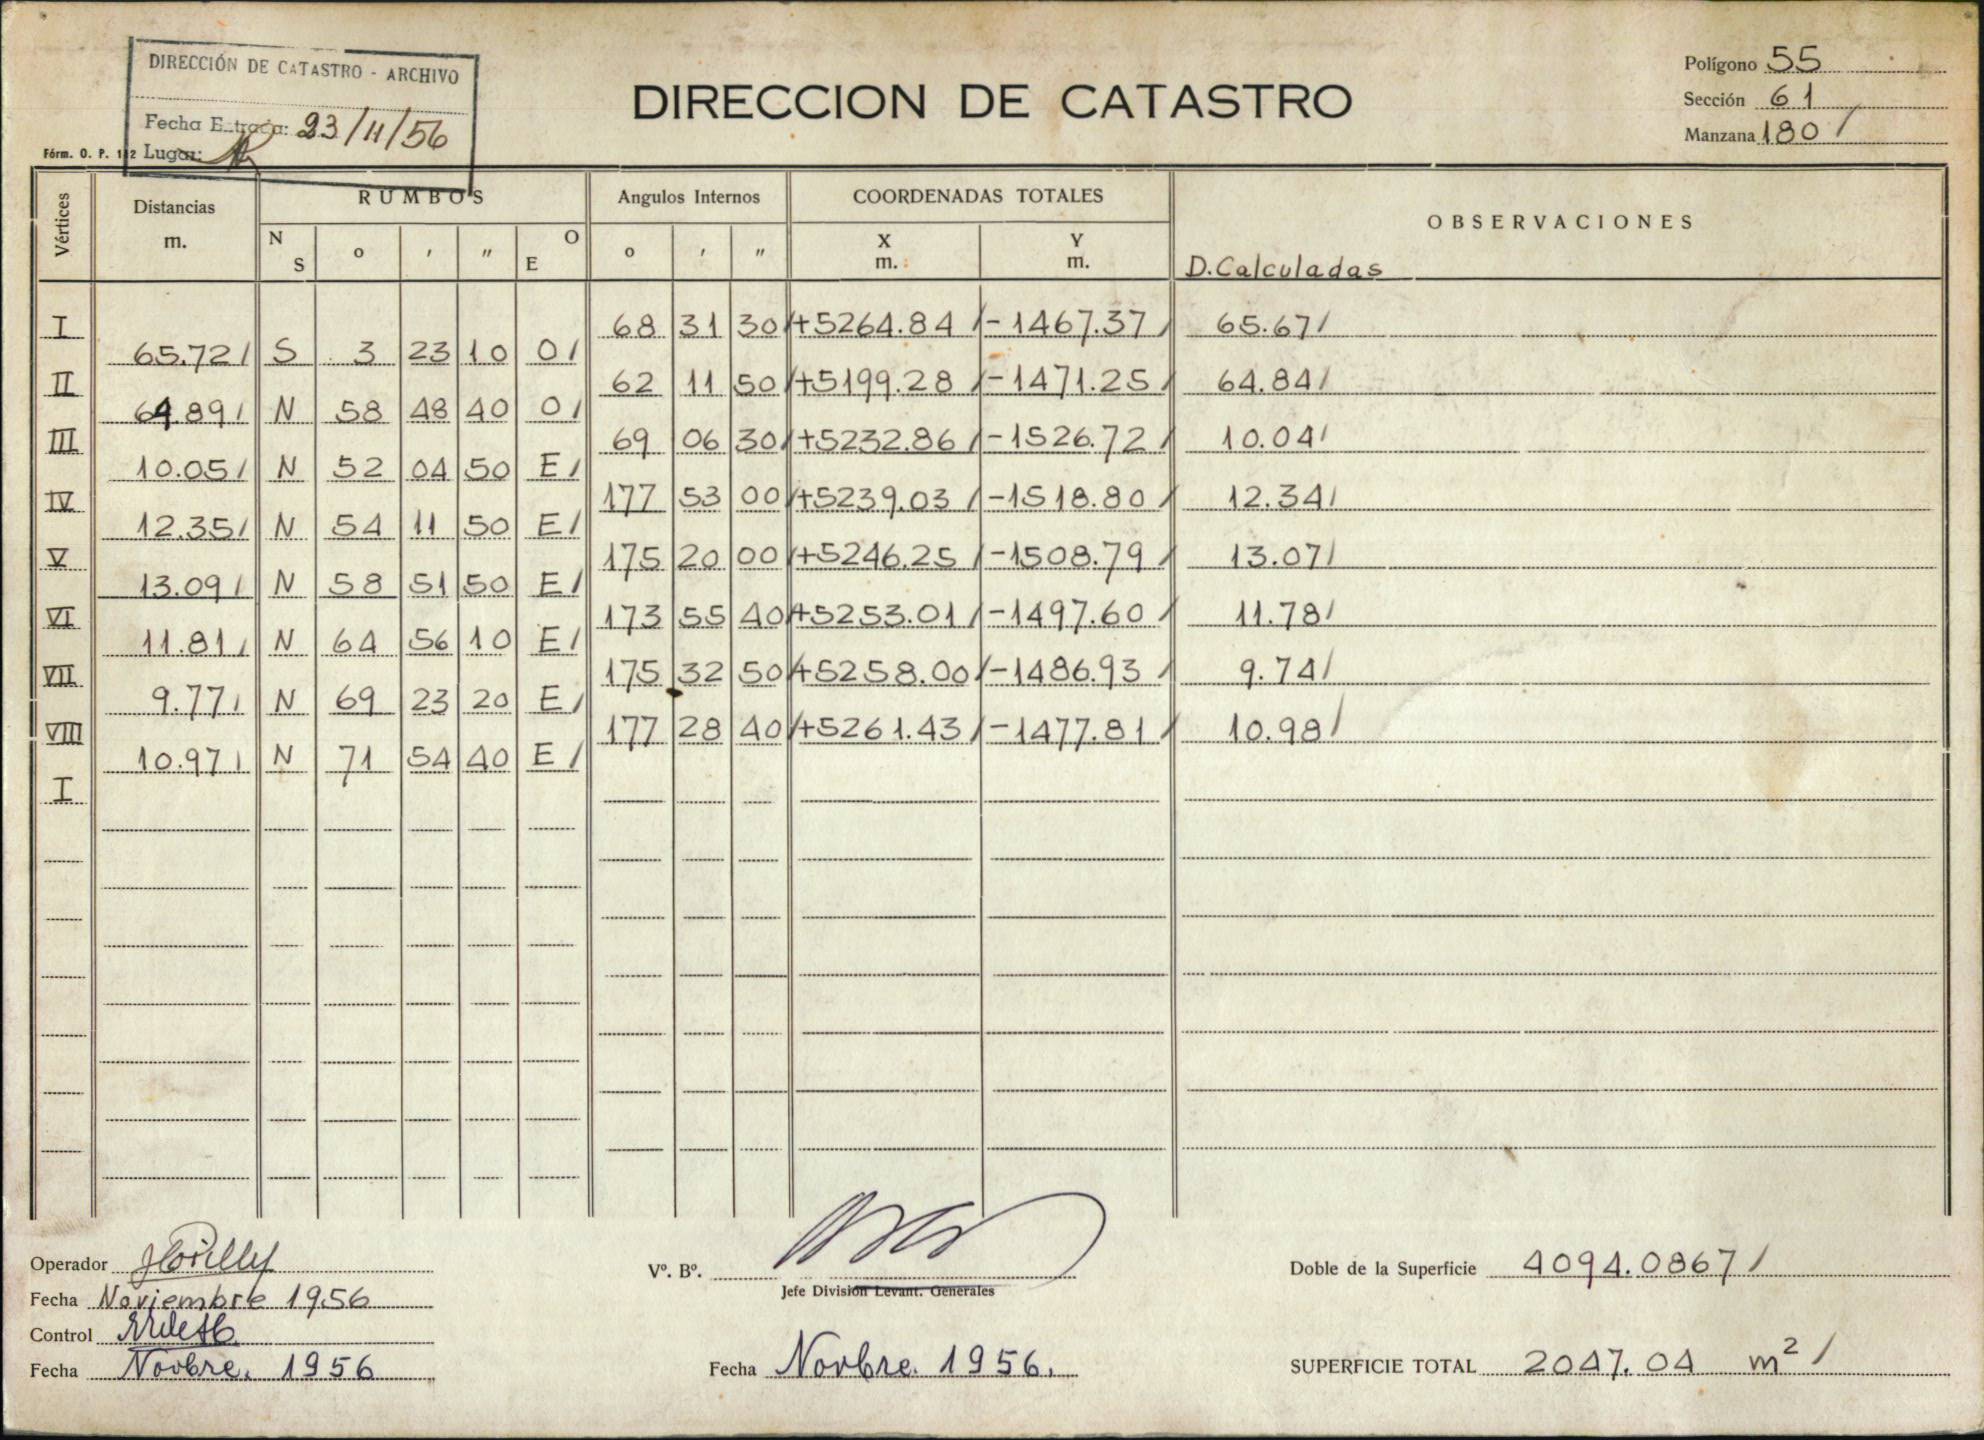 DIRECCIÓN DE CATASTRO - ARCHIVO
Fecha Entrada: 23/11/56
Lugar:
Fórm. O. P. 112
DIRECCION DE CATASTRO
Polígono 55
Sección 61
Manzana 180 /
Vértices Distancias m. RUMBOS Angulos Internos COORDENADAS TOTALES OBSERVACIONES
N S o ' " O E o ' " X m. Y m. D. Calculadas
I 68 31 30 / +5264.84 / -1467.37 / 65.67 /
65.72 / S 3 23 10 O /
II 62 11 50 / +5199.28 / -1471.25 / 64.84 /
64.89 / N 58 48 40 O /
III 69 06 30 / +5232.86 / -1526.72 / 10.04 /
10.05 / N 52 04 50 E /
IV 177 53 00 / +5239.03 / -1518.80 / 12.34 /
12.35 / N 54 11 50 E /
V 175 20 00 / +5246.25 / -1508.79 / 13.07 /
13.09 / N 58 51 50 E /
VI 173 55 40 / +5253.01 / -1497.60 / 11.78 /
11.81 / N 64 56 10 E /
VII 175 32 50 / +5258.00 / -1486.93 / 9.74 /
9.77 / N 69 23 20 E /
VIII 177 28 40 / +5261.43 / -1477.81 / 10.98 /
10.97 / N 71 54 40 E /
I
Operador
Fecha Noviembre 1956
Control
Fecha Novbre. 1956
Vº. Bº.
Jefe División Levant. Generales
Fecha Novbre. 1956.
Doble de la Superficie 4094.0867 /
SUPERFICIE TOTAL 2047.04 m² /